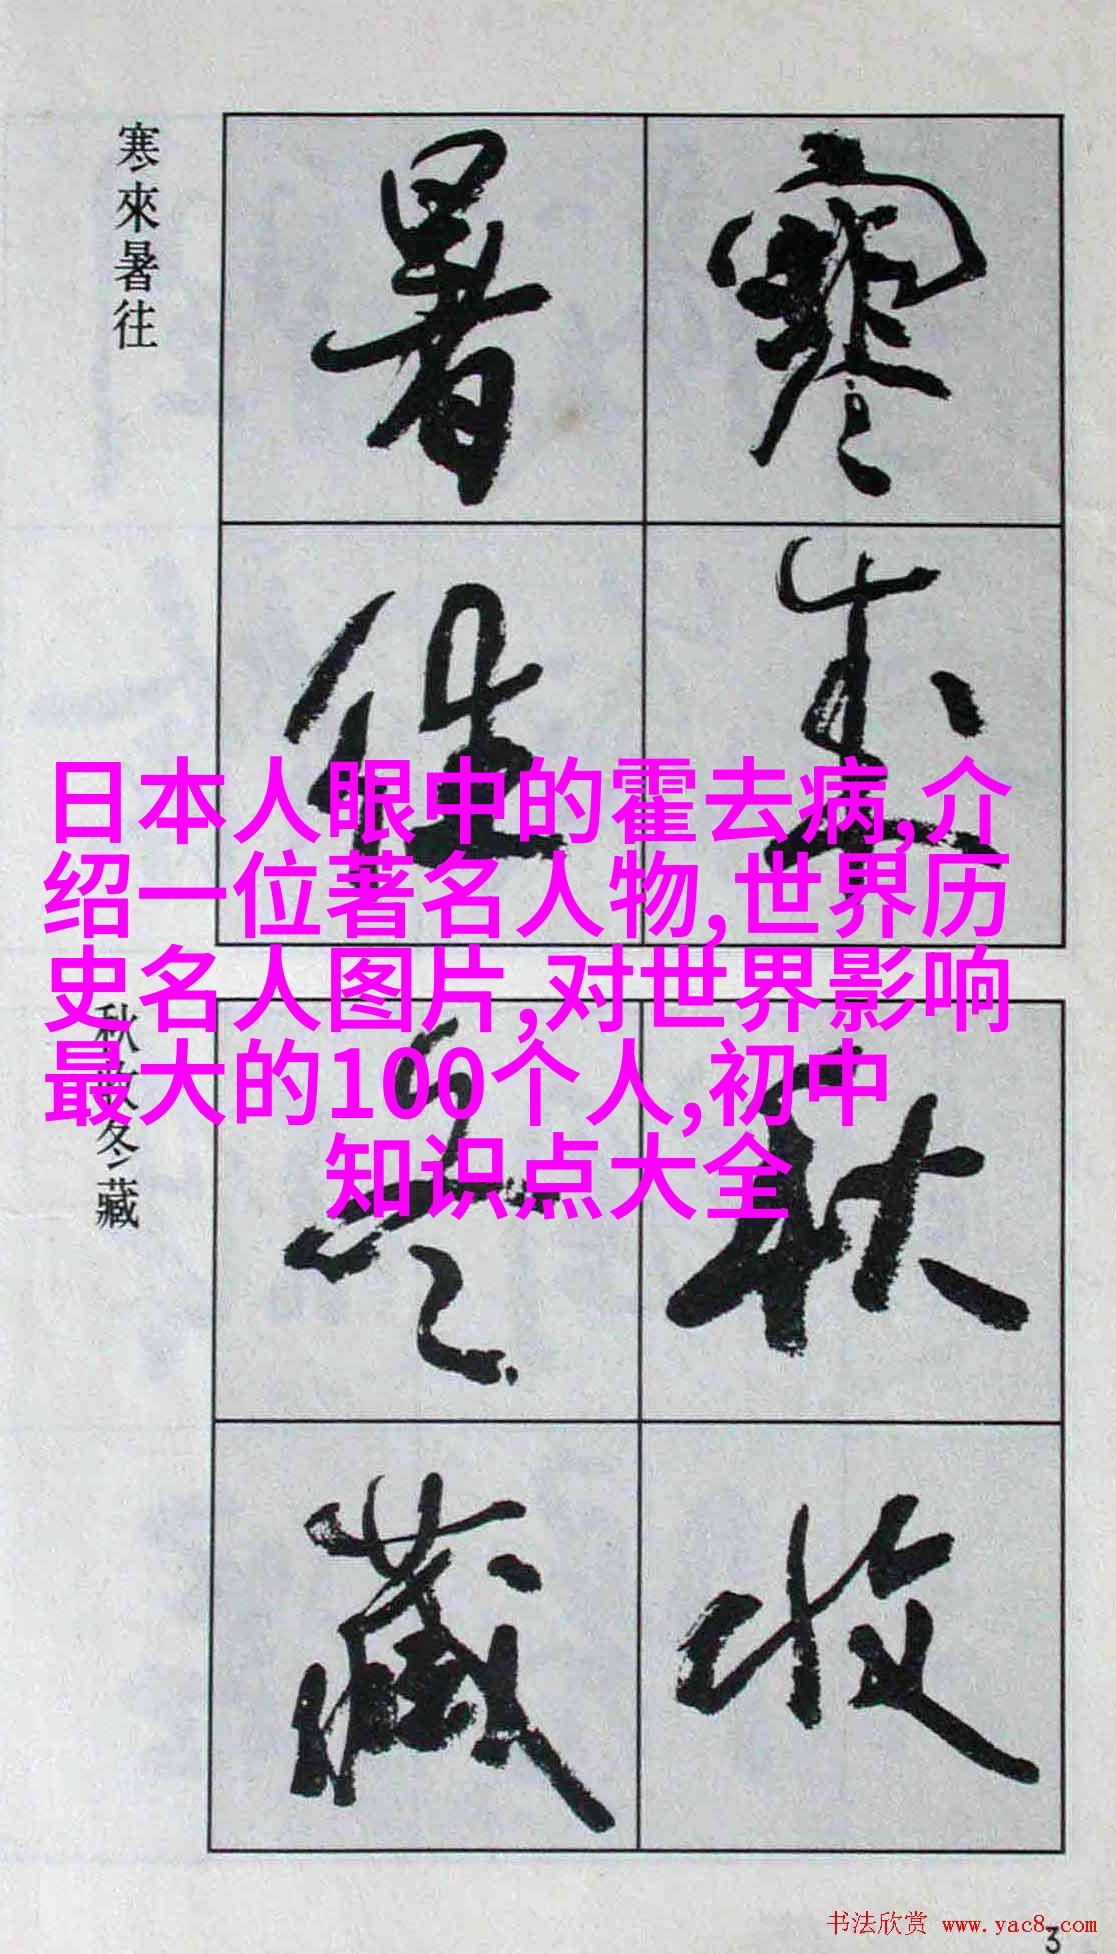 寒來暑往
寒來
暑往
日本人眼中的霍去病,介
绍一位著名人物,世界历
史名人图片,对世界影响
最大的100个人,初中
知识点大全
秋收冬藏
秋收
冬藏
书法欣赏 www.yac8.com
3